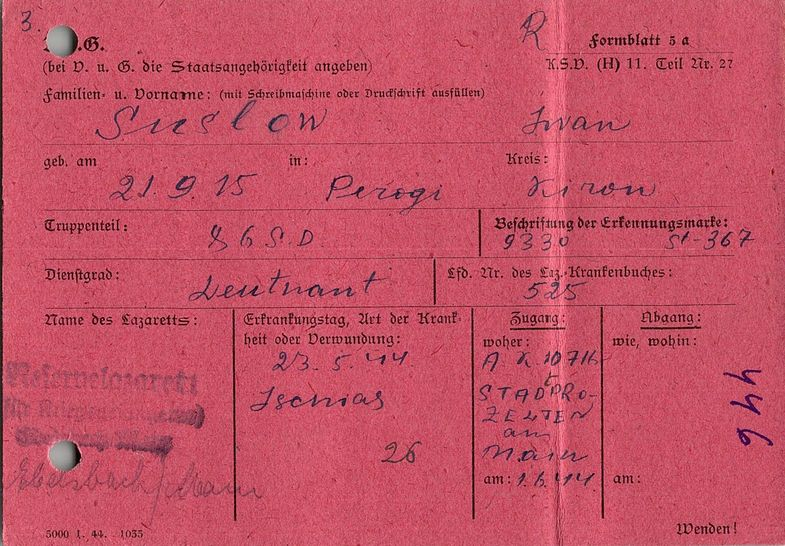 3.
.G. R Formblatt 5 a
(bei V. u. G. die Staatsangehörigkeit angeben) K.S.V. (H) 11. Teil Nr. 27
Familien- u. Vorname: (mit Schreibmaschine oder Druckschrift ausfüllen)
Suslow Iwan
geb. am in: Kreis:
21.9.15 Perogi Kirow
Truppenteil: Beschriftung der Erkennungsmarke:
86 S.D 9330 St-367
Dienstgrad: Lfd. Nr. des Laz.-Krankenbuches:
Leutnant 525
Name des Lazaretts: Erkrankungstag, Art der Krank- Zugang: Abgang:
heit oder Verwundung: woher: wie, wohin:
23.5.44 A.K. 10716
Ischias STADPRO-
ZELTEN
am
26 Main
446
Reservelazarett
Ebelsbach/Main
am: 1.6.44 am:
5000 1. 44. 1035 Wenden!